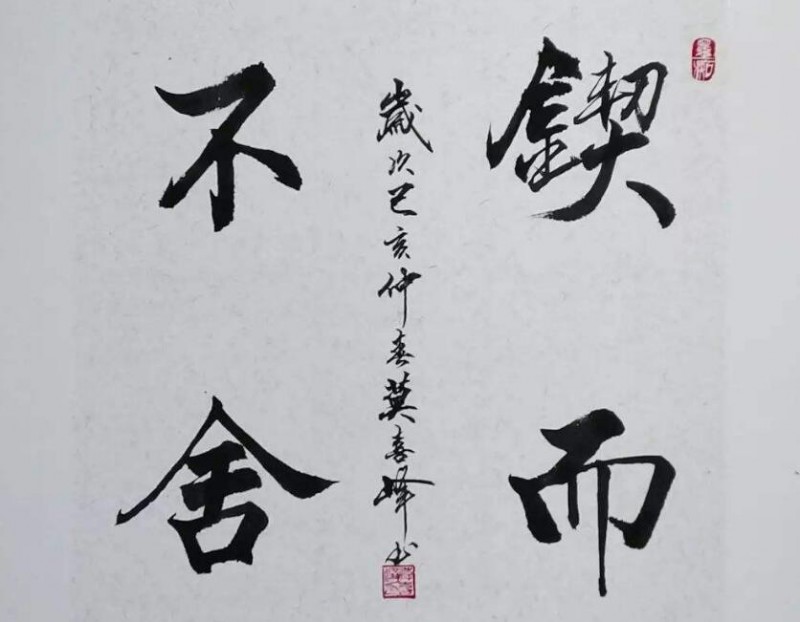 鍥而
不舍
歲次己亥仲春莫喜峰书